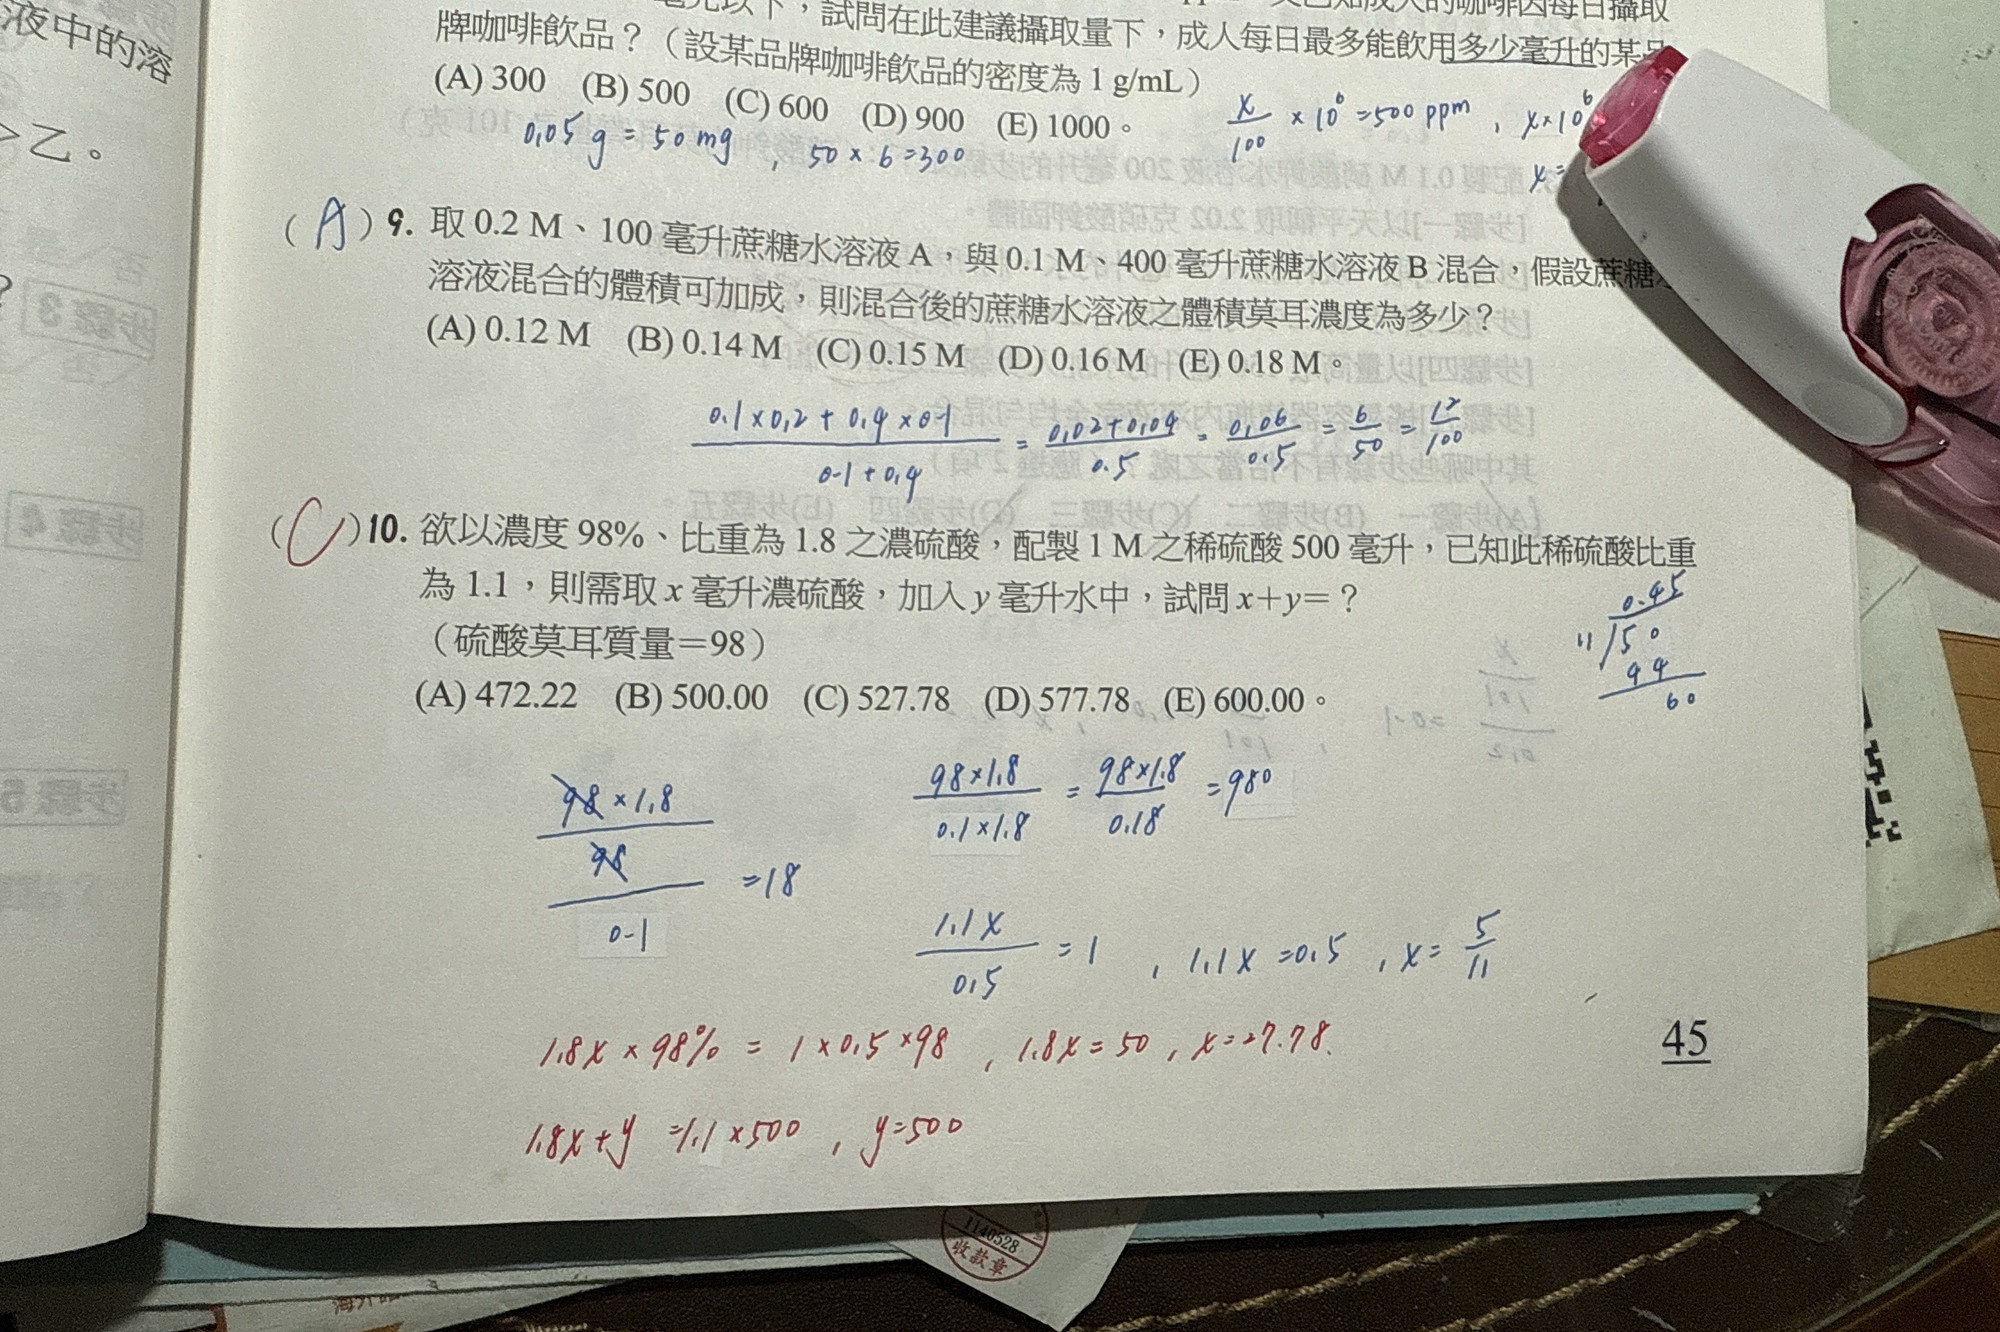 液中的溶
乙。
毫克以下,試問在此建議攝取量下,成人每日最多能飲用多少毫升的某品
牌咖啡飲品?(設某品牌咖啡飲品的密度為 1 g/mL)
(A) 300 (B) 500 (C) 600 (D) 900 (E) 1000。
0.05 g = 50 mg , 50 × 6 = 300
x/100 × 10⁶ = 500 ppm , x × 10⁶
x =
(A) 9. 取 0.2 M、100 毫升蔗糖水溶液 A,與 0.1 M、400 毫升蔗糖水溶液 B 混合,假設蔗糖
溶液混合的體積可加成,則混合後的蔗糖水溶液之體積莫耳濃度為多少?
(A) 0.12 M (B) 0.14 M (C) 0.15 M (D) 0.16 M (E) 0.18 M。
(0.1 × 0.2 + 0.4 × 0.1)/(0.1 + 0.4) = (0.02 + 0.04)/0.5 = 0.06/0.5 = 6/50 = 12/100
(C) 10. 欲以濃度 98%、比重為 1.8 之濃硫酸,配製 1 M 之稀硫酸 500 毫升,已知此稀硫酸比重
為 1.1,則需取 x 毫升濃硫酸,加入 y 毫升水中,試問 x+y=?
(硫酸莫耳質量=98)
(A) 472.22 (B) 500.00 (C) 527.78 (D) 577.78 (E) 600.00。
0.45
11 50
44
60
98 × 1.8
98
0.1
= 18
(98 × 1.8)/(0.1 × 1.8) = (98 × 1.8)/0.18 = 980
1.1x/0.5 = 1 , 1.1x = 0.5 , x = 5/11
1.8x × 98% = 1 × 0.5 × 98 , 1.8x = 50 , x = 27.78.
1.8x + y = 1.1 × 500 , y = 500
45
1140528
收款章